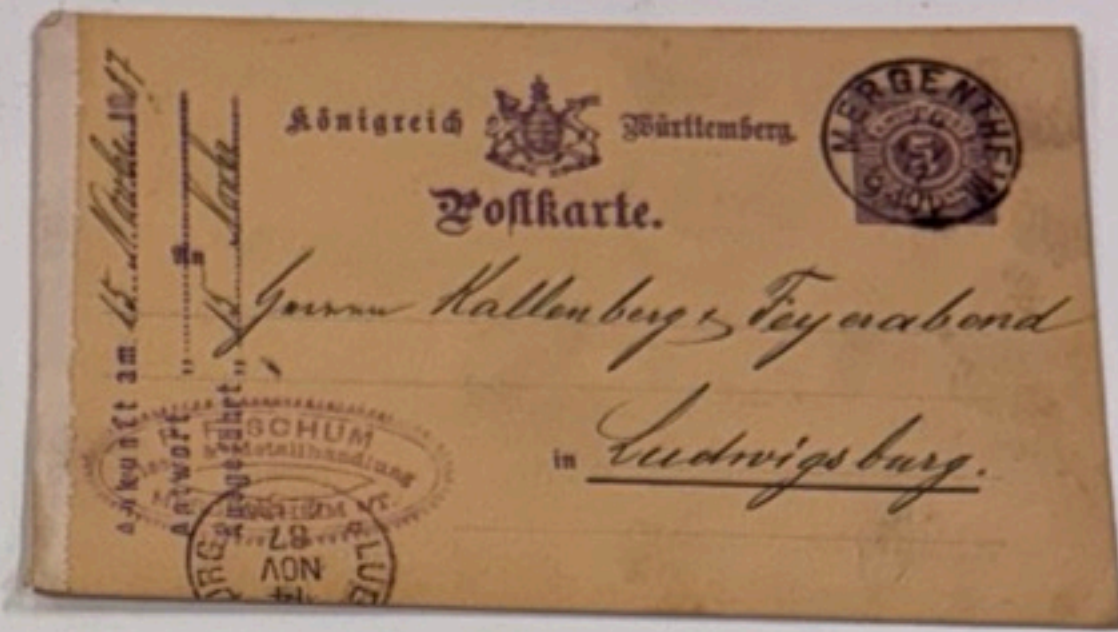 Königreich Württemberg.
Postkarte.
MERGENTHEIM
5
An
Herrn Kallenberg & Feyerabend
in Ludwigsburg.
Ankunft am 15. 1887
Antwort "
Ausgeführt " 15
SCHUM
Metallhandlung
14
NOV
87